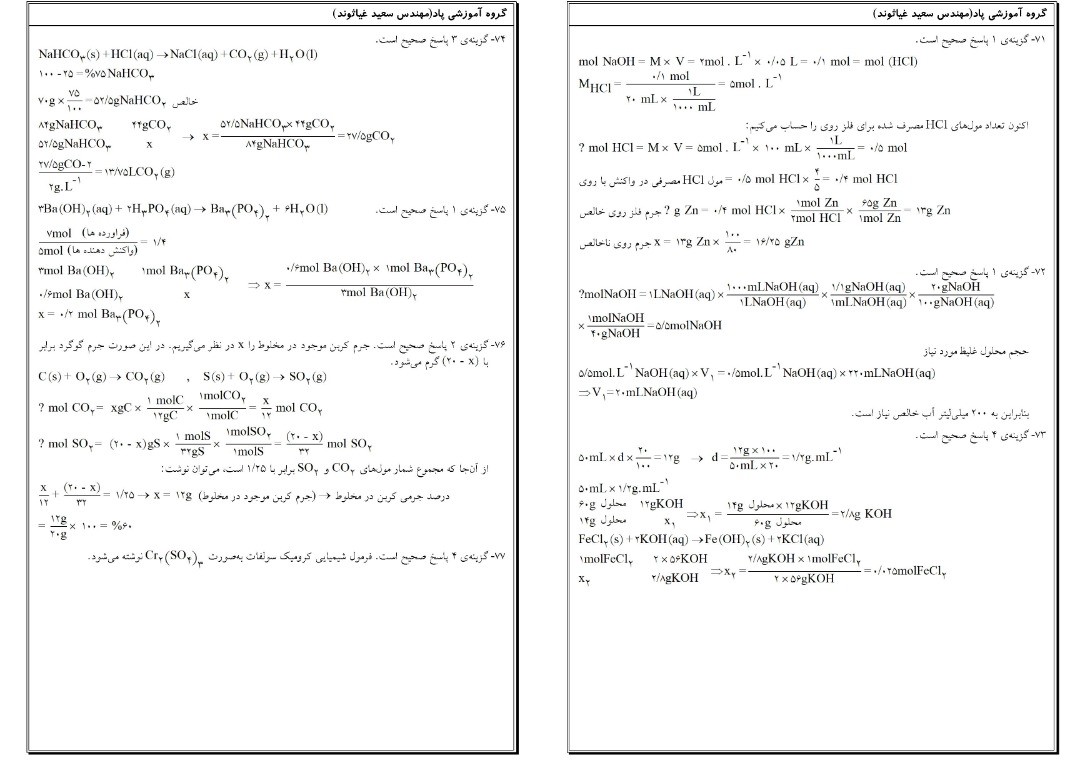 گروه آموزشی پاد(مهندس سعید غیاثوند)
۷۱- گزینه‌ی ۱ پاسخ صحیح است.
mol NaOH = M × V = ۲mol . L⁻¹ × ۰/۰۵ L = ۰/۱ mol = mol (HCl)
M_HCl = ۰/۱ mol / (۲۰ mL × ۱L/۱۰۰۰ mL) = ۵mol . L⁻¹
اکنون تعداد مول‌های HCl مصرف شده برای فلز روی را حساب می‌کیم:
? mol HCl = M × V = ۵mol . L⁻¹ × ۱۰۰ mL × ۱L/۱۰۰۰mL = ۰/۵ mol
مول HCl مصرفی در واکنش با روی = ۰/۵ mol HCl × ۴/۵ = ۰/۴ mol HCl
جرم فلز روی خالص ? g Zn = ۰/۴ mol HCl × ۱mol Zn/۲mol HCl × ۶۵g Zn/۱mol Zn = ۱۳g Zn
جرم روی ناخالص x = ۱۳g Zn × ۱۰۰/۸۰ = ۱۶/۲۵ gZn
۷۲- گزینه‌ی ۱ پاسخ صحیح است.
?molNaOH = ۱LNaOH(aq) × ۱۰۰۰mLNaOH(aq)/۱LNaOH(aq) × ۱/۱gNaOH(aq)/۱mLNaOH(aq) × ۲۰gNaOH/۱۰۰gNaOH(aq)
× ۱molNaOH/۴۰gNaOH = ۵/۵molNaOH
حجم محلول غلیظ مورد نیاز
۵/۵mol.L⁻¹NaOH(aq) × V₁ = ۰/۵mol.L⁻¹NaOH(aq) × ۲۲۰mLNaOH(aq)
⇒V₁=۲۰mLNaOH(aq)
بنابراین به ۲۰۰ میلی‌لیتر آب خالص نیاز است.
۷۳- گزینه‌ی ۴ پاسخ صحیح است.
۵۰mL × d × ۲۰/۱۰۰ = ۱۲g → d = ۱۲g × ۱۰۰/۵۰mL × ۲۰ = ۱/۲g.mL⁻¹
۵۰mL × ۱/۲g.mL⁻¹
۶۰g محلول ۱۲gKOH
۱۴g محلول x₁ ⇒ x₁ = ۱۴g محلول × ۱۲gKOH/۶۰g محلول = ۲/۸g KOH
FeCl₂(s) + ۲KOH(aq) → Fe(OH)₂(s) + ۲KCl(aq)
۱molFeCl₂ ۲ × ۵۶gKOH
x₂ ۲/۸gKOH ⇒ x₂ = ۲/۸gKOH × ۱molFeCl₂/۲ × ۵۶gKOH = ۰/۰۲۵molFeCl₂
گروه آموزشی پاد(مهندس سعید غیاثوند)
۷۴- گزینه‌ی ۳ پاسخ صحیح است.
NaHCO₃(s) + HCl(aq) → NaCl(aq) + CO₂(g) + H₂O(l)
۱۰۰ - ۲۵ = %۷۵ NaHCO₃
۷۰g × ۷۵/۱۰۰ = ۵۲/۵gNaHCO₂ خالص
۸۴gNaHCO₃ ۴۴gCO₂
۵۲/۵gNaHCO₃ x → x = ۵۲/۵NaHCO₃ × ۴۴gCO₂/۸۴gNaHCO₃ = ۲۷/۵gCO₂
۲۷/۵gCO-۲/۲g.L⁻¹ = ۱۳/۷۵LCO₂(g)
۷۵- گزینه‌ی ۱ پاسخ صحیح است. ۳Ba(OH)₂(aq) + ۲H₃PO₄(aq) → Ba₃(PO₄)₂ + ۶H₂O(l)
۷mol (فراورده ها)/۵mol (واکنش دهنده ها) = ۱/۴
۳mol Ba(OH)₂ ۱mol Ba₃(PO₄)₂
۰/۶mol Ba(OH)₂ x ⇒ x = ۰/۶mol Ba(OH)₂ × ۱mol Ba₃(PO₄)₂/۳mol Ba(OH)₂
x = ۰/۲ mol Ba₃(PO₄)₂
۷۶- گزینه‌ی ۲ پاسخ صحیح است. جرم کربن موجود در مخلوط را x در نظر می‌گیریم. در این صورت جرم گوگرد برابر
با (۲۰ - x) گرم می‌شود.
C(s) + O₂(g) → CO₂(g) , S(s) + O₂(g) → SO₂(g)
? mol CO₂ = xgC × ۱ molC/۱۲gC × ۱molCO₂/۱molC = x/۱۲ mol CO₂
? mol SO₂ = (۲۰ - x)gS × ۱ molS/۳۲gS × ۱molSO₂/۱molS = (۲۰ - x)/۳۲ mol SO₂
از آن‌جا که مجموع شمار مول‌های CO₂ و SO₂ برابر با ۱/۲۵ است، می‌توان نوشت:
x/۱۲ + (۲۰ - x)/۳۲ = ۱/۲۵ → x = ۱۲g (جرم کربن موجود در مخلوط) → درصد جرمی کربن در مخلوط
= ۱۲g/۲۰g × ۱۰۰ = %۶۰
۷۷- گزینه‌ی ۴ پاسخ صحیح است. فرمول شیمیایی کرومیک سولفات به‌صورت Cr₂(SO₄)₃ نوشته می‌شود.